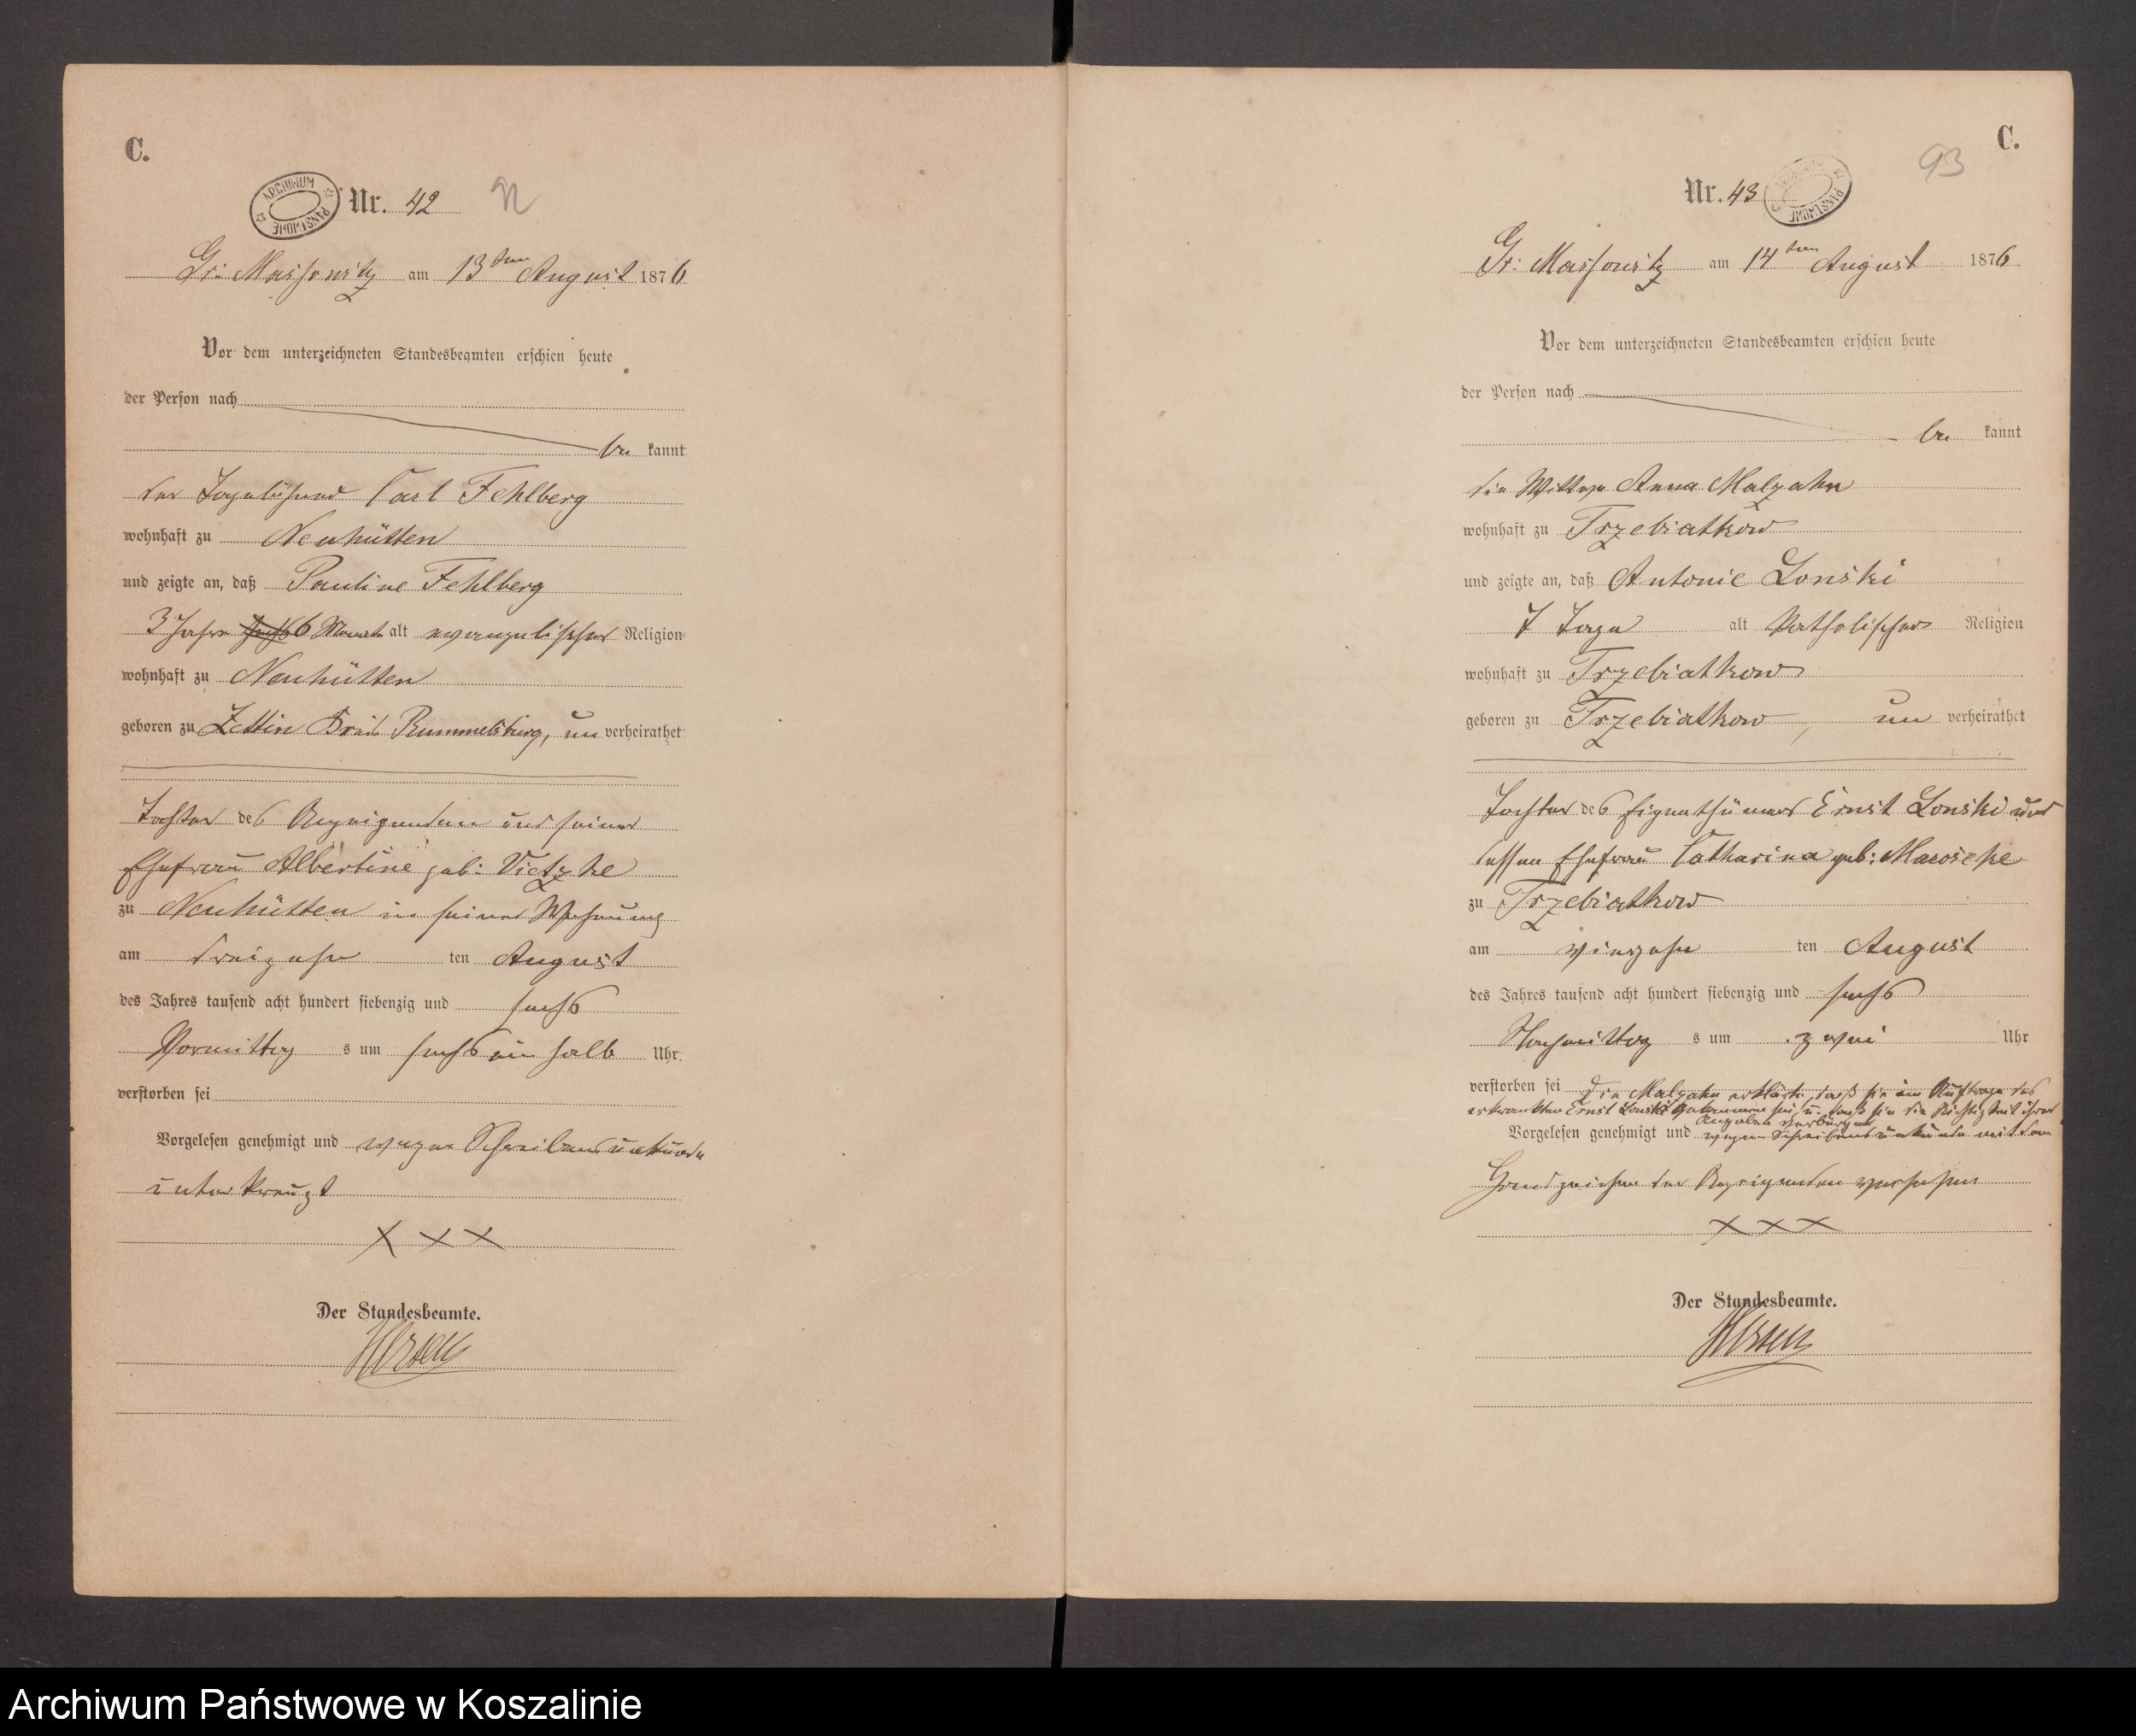 C.
ARCHIWUM PAŃSTWOWE
Nr. 42
Gr: Massowitz am 13ten August 1876
Vor dem unterzeichneten Standesbeamten erschien heute
der Person nach
be kannt
der Tagelöhner Carl Fehlberg
wohnhaft zu Neuhütten
und zeigte an, daß Pauline Fehlberg
3 Jahre sechs 6 Monate alt evangelischer Religion
wohnhaft zu Neuhütten
geboren zu Zettin Kreis Rummelsburg, un verheirathet
Tochter des Anzeigenden und seiner
Ehefrau Albertine geb: Vietzke
zu Neuhütten in seiner Wohnung
am dreizehn ten August
des Jahres tausend acht hundert siebenzig und sechs
Vormittag s um sechs ein halb Uhr
verstorben sei
Vorgelesen genehmigt und wegen Schreibensunkunde
unterkreuzt
X X X
Der Standesbeamte.
C.
93
Nr. 43
ARCHIWUM PAŃSTWOWE
Gr: Massowitz am 14ten August 1876
Vor dem unterzeichneten Standesbeamten erschien heute
der Person nach
be kannt
die Wittwe Anna Malzahn
wohnhaft zu Trzebiatkow
und zeigte an, daß Antonie Lonski
7 Tage alt katholischer Religion
wohnhaft zu Trzebiatkow
geboren zu Trzebiatkow, un verheirathet
Tochter des Eigenthümers Ernst Lonski und
dessen Ehefrau Catharina geb:
zu Trzebiatkow
am vierzehn ten August
des Jahres tausend acht hundert siebenzig und sechs
Nachmittag s um zwei Uhr
verstorben sei Die Malzahn erklärte, daß sie im Auftrage des
erkrankten Ernst Lonski gekommen sei u. daß sie die Richtigkeit ihrer
Angaben verbürge
Vorgelesen genehmigt und wegen Schreibensunkunde mit dem
Handzeichen der Anzeigenden versehen
X X X
Der Standesbeamte.
Archiwum Państwowe w Koszalinie